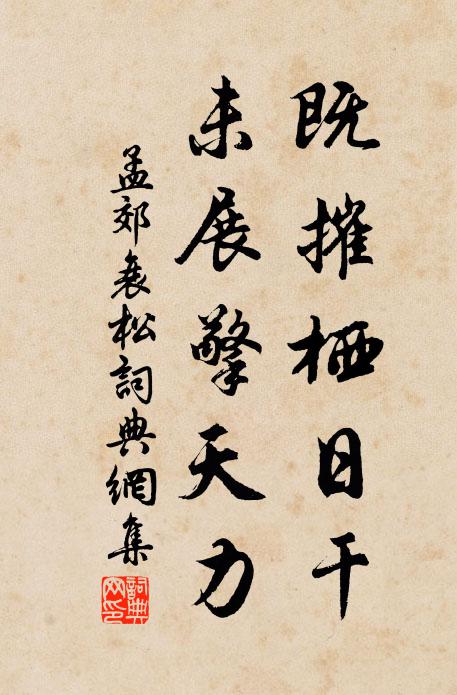 既摧栖日干
未展擎天力
孟郊衰松詞典網集
詞典網印